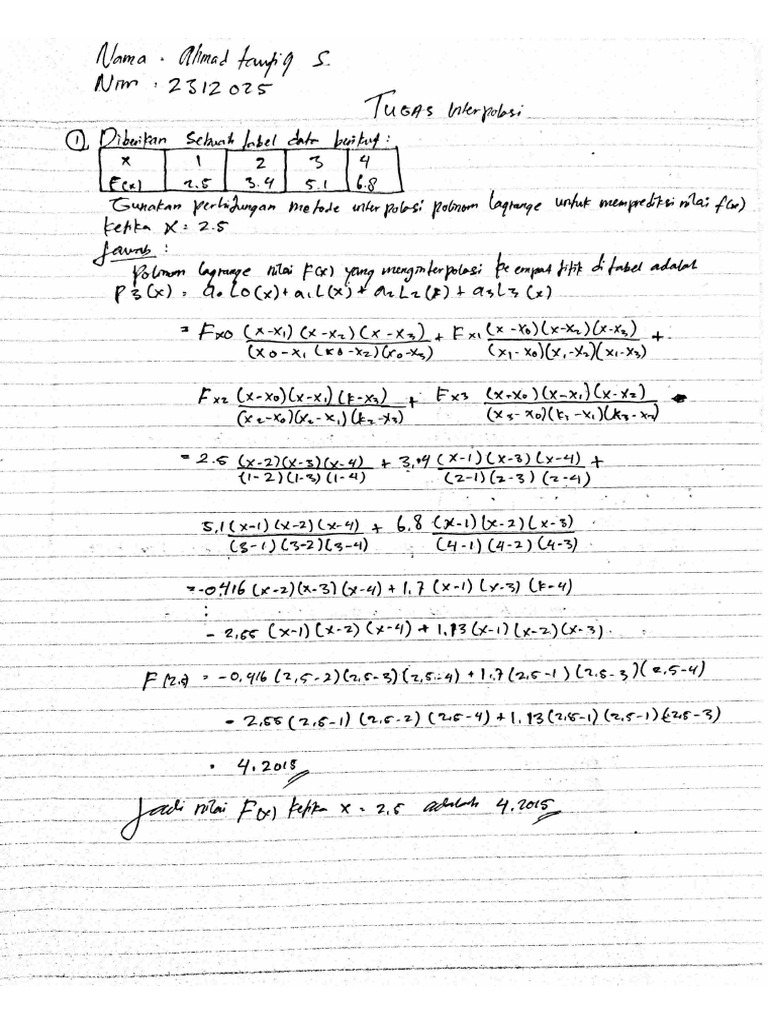 Nama : Ahmad taufiq S.
Nim : 2312025
TUGAS Interpolasi
① Diberikan sebuah tabel data berikut :
x 1 2 3 4
F(x) 2.5 3.4 5.1 6.8
Gunakan perhitungan metode interpolasi polinom lagrange untuk memprediksi nilai f(x)
ketika x = 2.5
Jawab :
polinom lagrange nilai F(x) yang menginterpolasi ke empat titik di tabel adalah
P3(x) = a0L0(x)+a1L(x)+a2L2(x)+a3L3(x)
= Fx0 (x-x1)(x-x2)(x-x3) + Fx1 (x-x0)(x-x2)(x-x3) +
(x0-x1 (x0-x2)(x0-x3) (x1-x0)(x1-x2)(x1-x3)
Fx2 (x-x0)(x-x1)(x-x3) + Fx3 (x-x0)(x-x1)(x-x2)
(x2-x0)(x2-x1)(x2-x3) (x3-x0)(x3-x1)(x3-x2)
= 2.5 (x-2)(x-3)(x-4) + 3.4 (x-1)(x-3)(x-4) +
(1-2)(1-3)(1-4) (2-1)(2-3)(2-4)
5,1(x-1)(x-2)(x-4) + 6.8 (x-1)(x-2)(x-3)
(3-1)(3-2)(3-4) (4-1)(4-2)(4-3)
= -0,416 (x-2)(x-3)(x-4) + 1.7 (x-1)(x-3)(x-4)
- 2,55 (x-1)(x-2)(x-4) + 1,13 (x-1)(x-2)(x-3).
F(2.5) = -0,416 (2,5-2)(2,5-3)(2,5-4) + 1.7 (2,5-1)(2.5-3)(2,5-4)
- 2,55 (2,5-1)(2,5-2)(2,5-4) + 1,13 (2,5-1)(2,5-1)(2,5-3)
= 4.2015
Jadi nilai F(x) ketika x = 2,5 adalah 4.2015